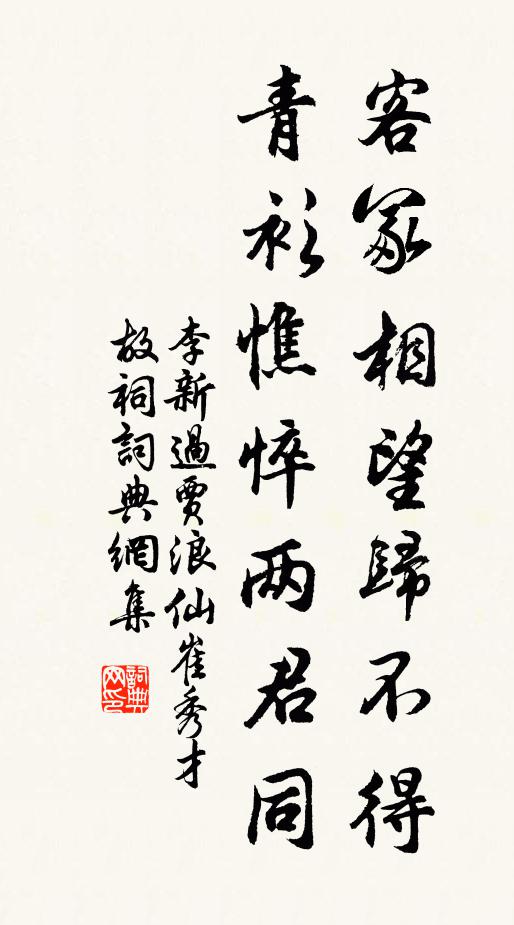 客冢相望歸不得
青衫憔悴两君同
李新過賈浪仙崔秀才
故祠詞典網集
詞典網印